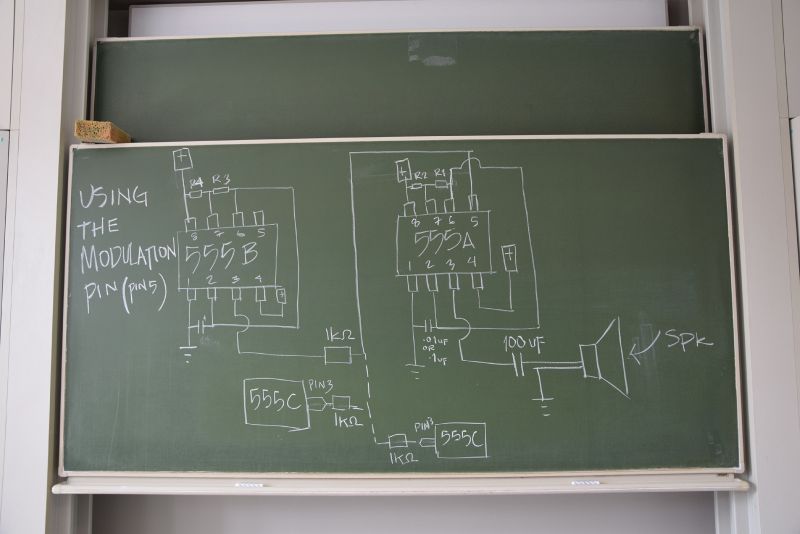 USING
THE
MODULATION
PIN (PIN 5)
+
R4 R3
8 7 6 5
555B
1 2 3 4
+
1KΩ
555C
PIN3
1KΩ
+
R2 R1
8 7 6 5
555A
1 2 3 4
+
.01uF
OR
.1uF
100uF
SPK
1KΩ
PIN3
555C